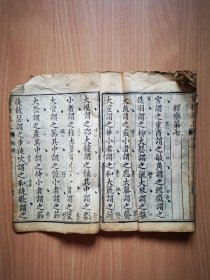 釋樂第七
宮謂之重商謂之敏角謂之經徵謂之
迭羽謂之柳大瑟謂之灑大琴謂之離
大鼓謂之鼖小者謂之應大磬謂之毊
大笙謂之巢小者謂之和大篪謂之沂
大塤謂之嘂大鐘謂之鏞其中謂之剽
小者謂之棧大簫謂之言小者謂之筊
大管謂之簥其中謂之篞小者謂之篎
大籥謂之產其中謂之仲小者謂之箹
徒鼓瑟謂之步徒吹謂之和徒歌謂之